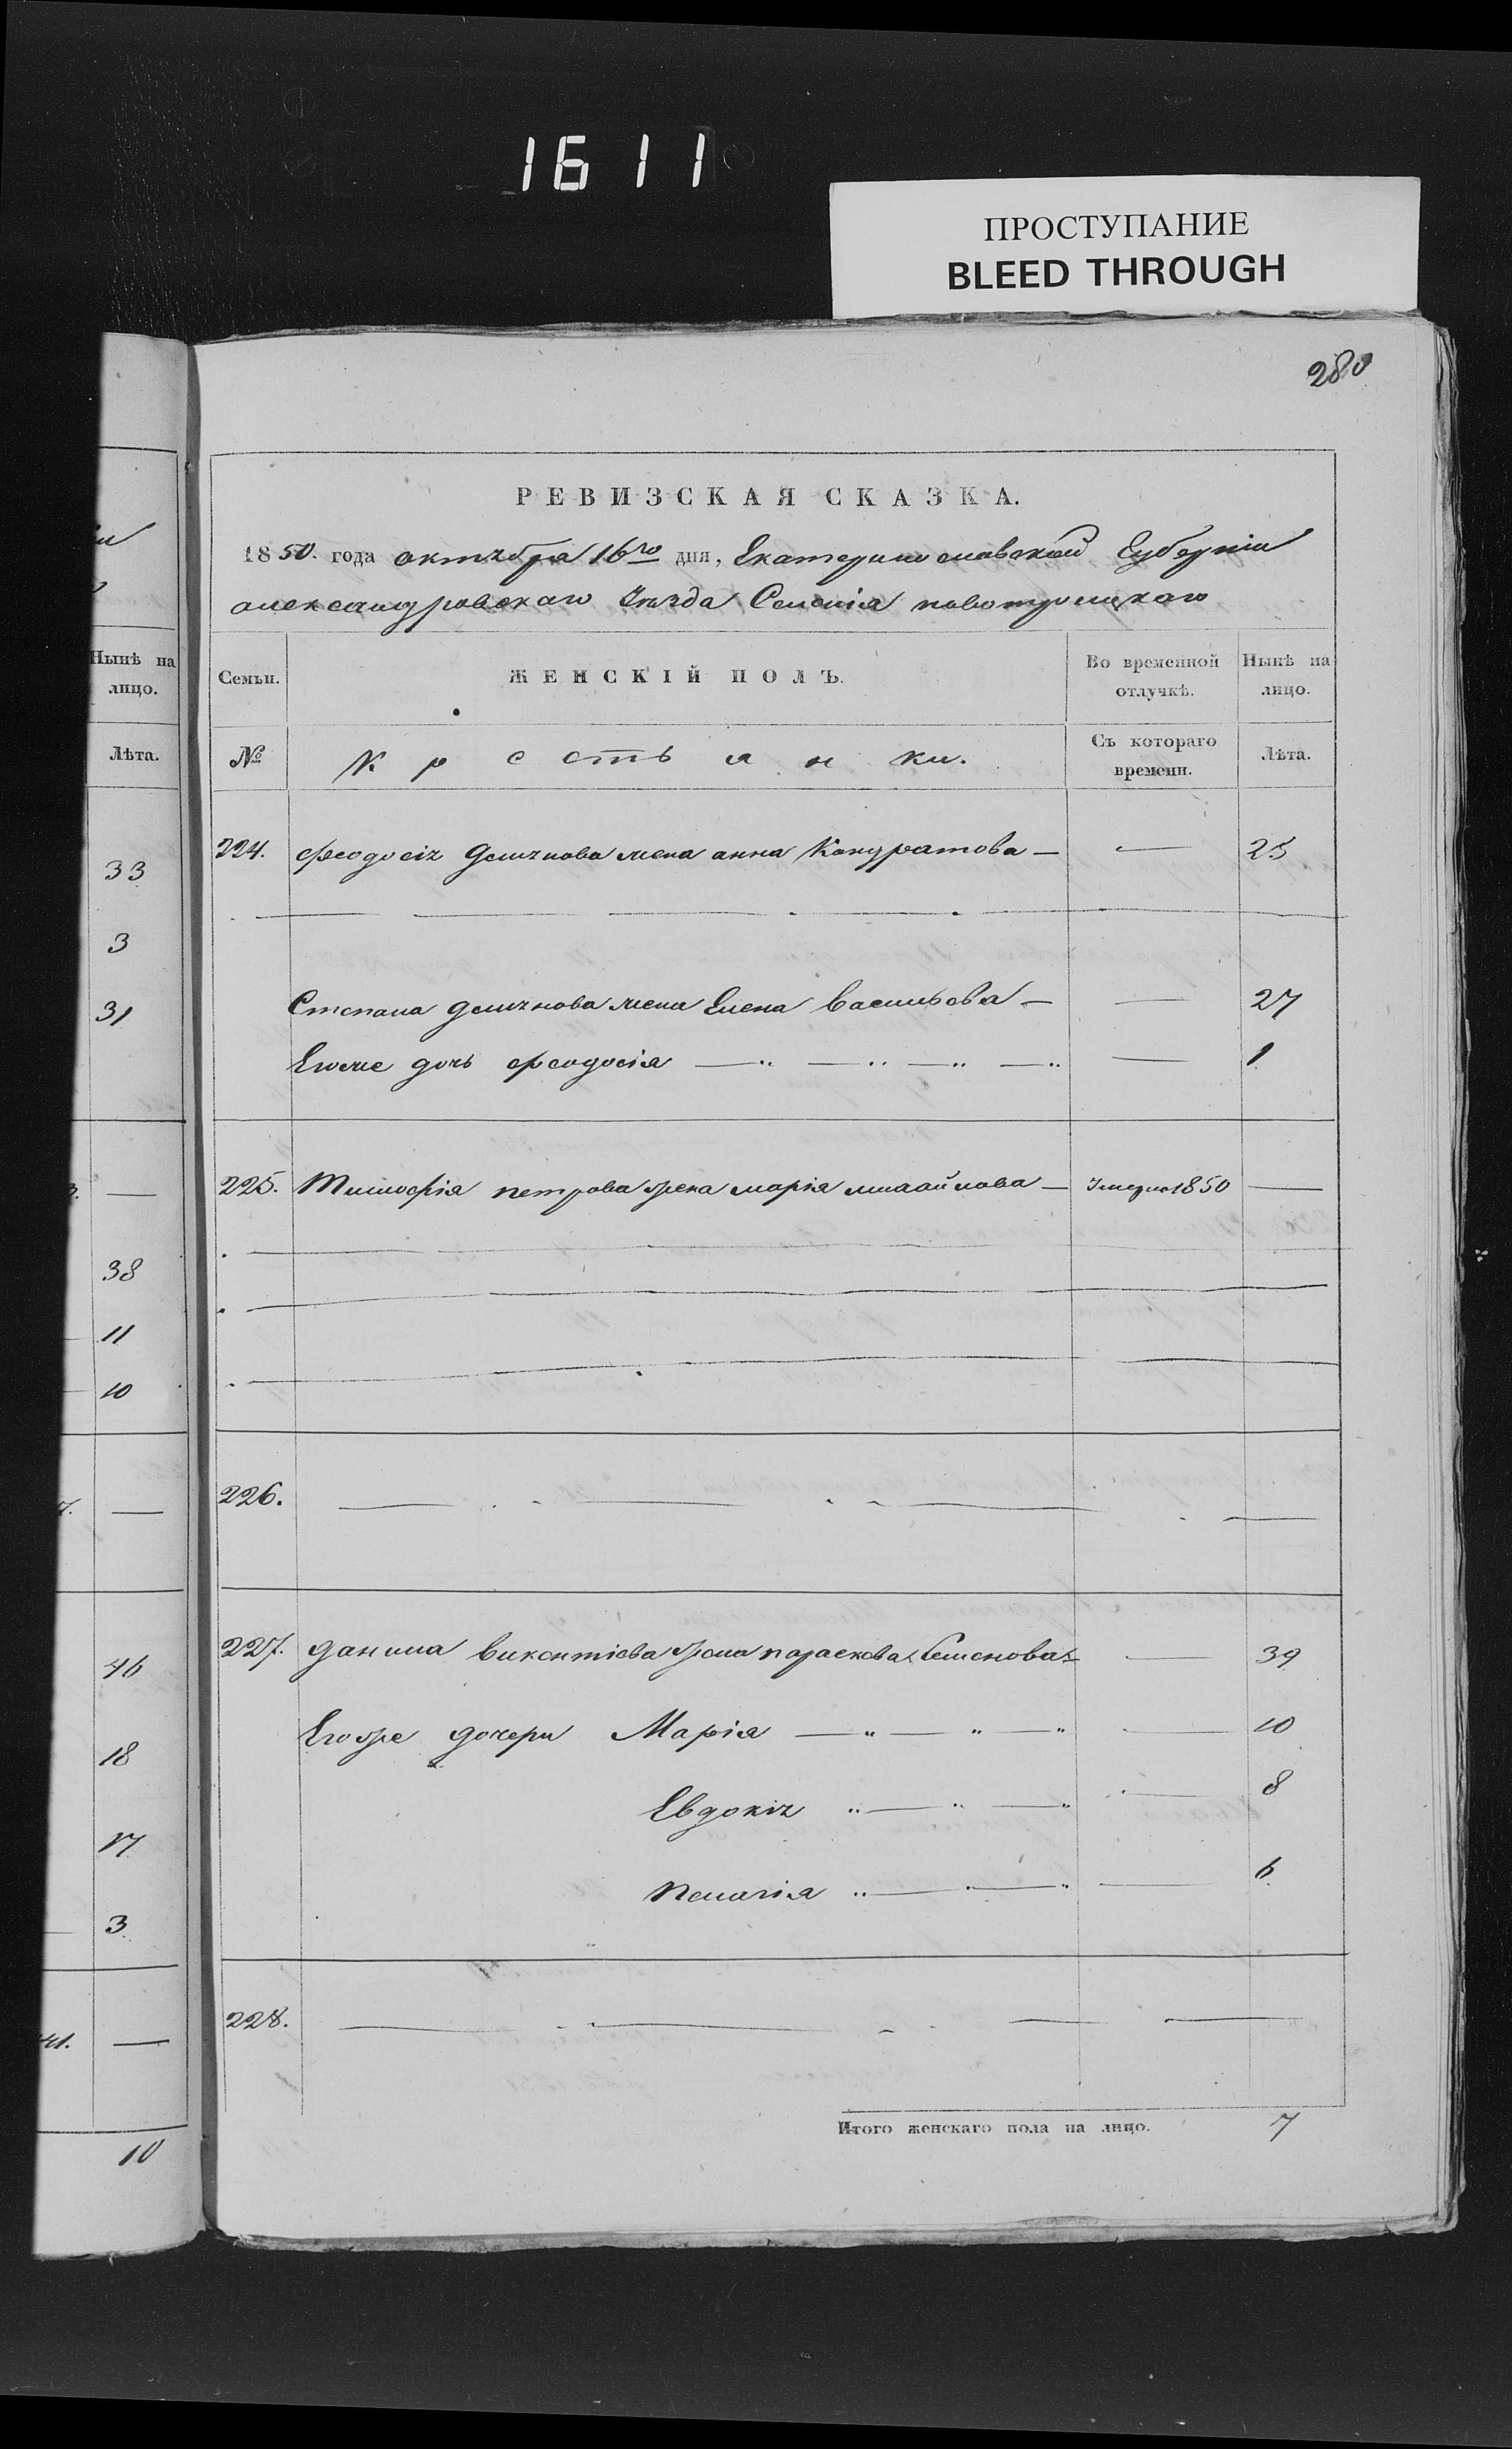 1611
ПРОСТУПАНИЕ
BLEED THROUGH
280
РЕВИЗСКАЯ СКАЗКА.
1850. года октября 16го дня, Екатеринославской Губерніи
александровскаго Уезда Селенія новотроицкаго
Нынѣ на лицо.
Лѣта.
33
3
31
—
38
11
10
—
46
18
17
3
41. —
10
Семьи. ЖЕНСКІЙ ПОЛЪ. Во временной отлучкѣ. Нынѣ на лицо.
№ Крестьянки. Съ котораго времени. Лѣта.
224. феодосія Демянова жена анна Кондратова — — 25
Степана демянова жена Елена васильева — — 27
Егоже дочь феодосія — 1
225. Тимофія петрова жена марія михайлова — 1850 —
226.
227. данила викентіева жена параскова Семенова — — 39
Егоже дочери Марія — 10
Евдокія — 8
пелагія — 6
228.
Итого женскаго пола на лицо. 7